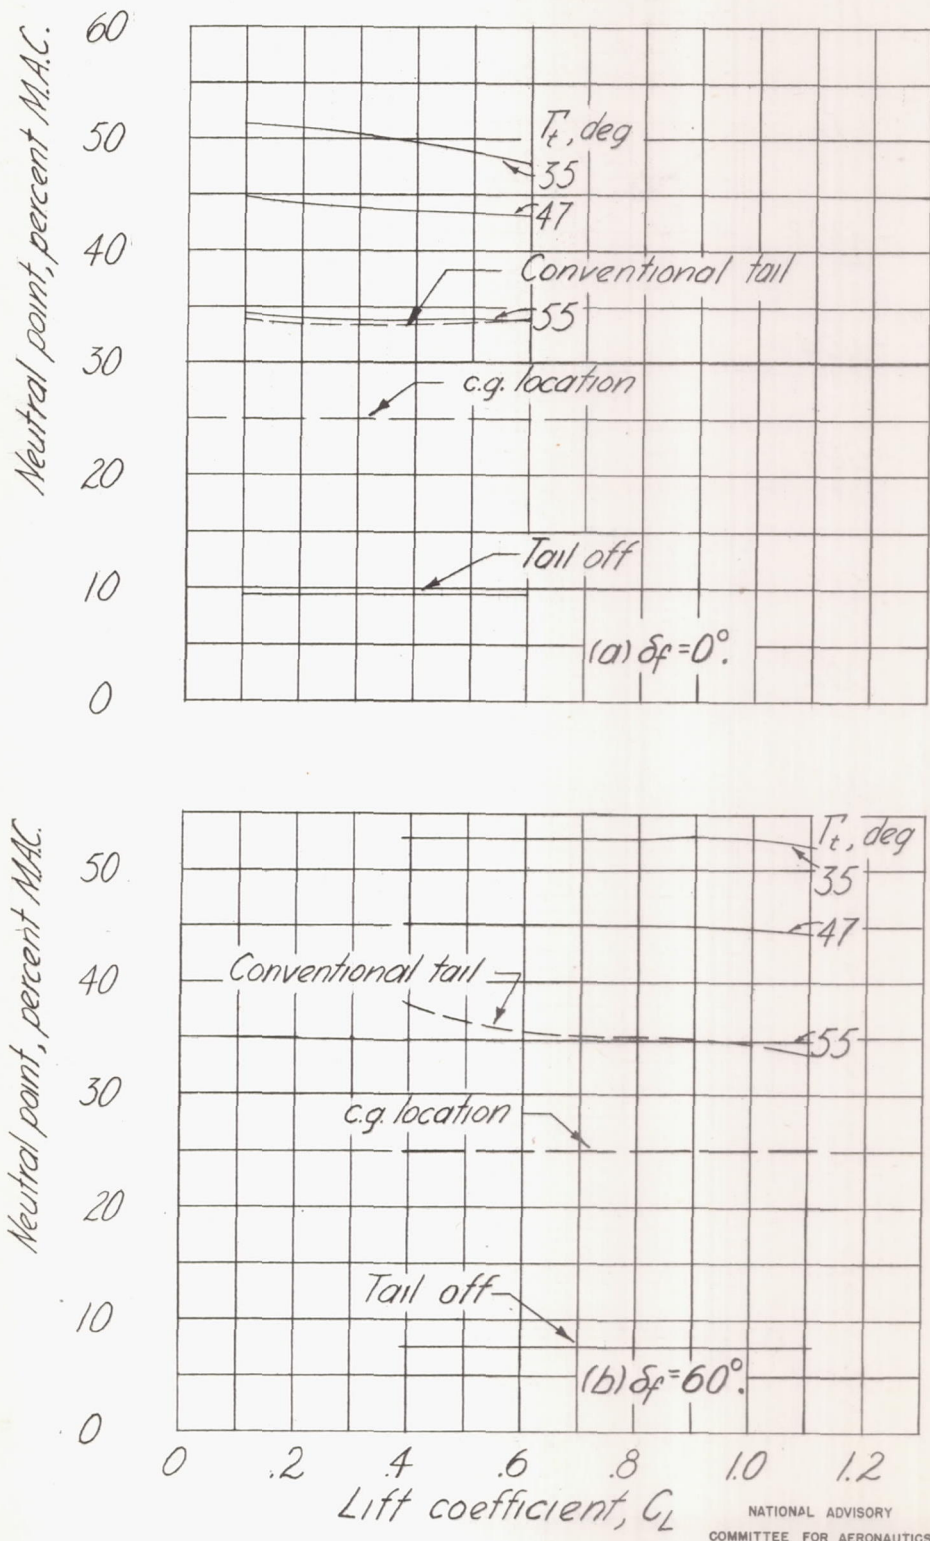 Neutral point, percent M.A.C.
60
50
40
30
20
10
0
Γt, deg
35
47
Conventional tail
55
c.g. location
Tail off
(a) δf = 0°.
Neutral point, percent M.A.C.
50
40
30
20
10
0
Γt, deg
35
47
Conventional tail
55
c.g. location
Tail off
(b) δf = 60°.
0 .2 .4 .6 .8 1.0 1.2
Lift coefficient, CL
NATIONAL ADVISORY
COMMITTEE FOR AERONAUTICS